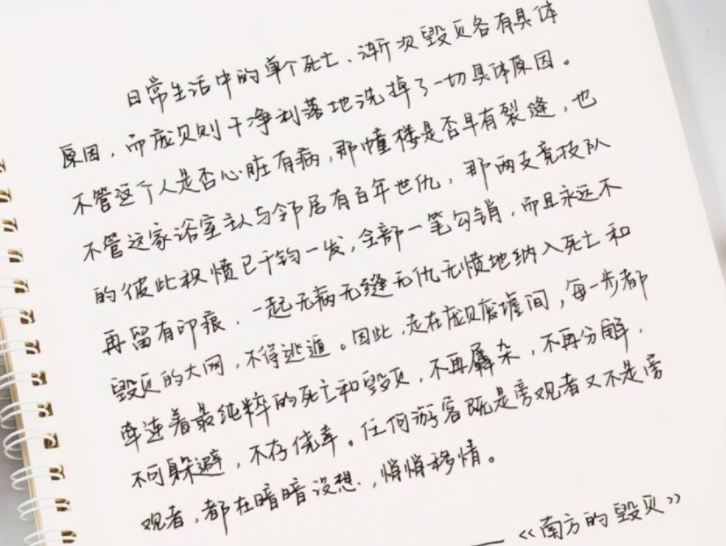 日常生活中的单个死亡、渐次毁灭各有具体
原因,而庞贝则干净利落地洗掉了一切具体原因。
不管这个人是否心脏有病,那幢楼是否早有裂缝,也
不管这家浴室主人与邻居有百年世仇,那两支竞技队
的彼此积愤已千钧一发,全部一笔勾销,而且永远不
再留有印痕,一起无病无缝无仇无愤地纳入死亡和
毁灭的大网,不得逃遁。因此,走在庞贝废墟间,每一步都
牵连着最纯粹的死亡和毁灭,不再羼杂,不再分解,
不可躲避,不存侥幸。任何游客既是旁观者又不是旁
观者,都在暗暗设想,悄悄移情。
——《南方的毁灭》